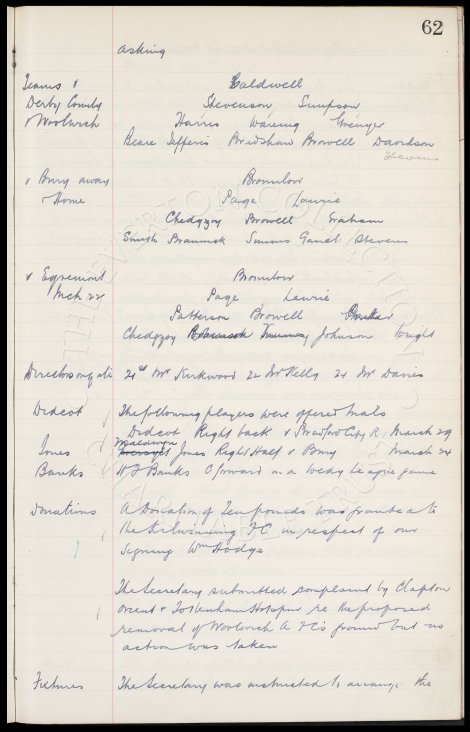 62
asking
Teams v Caldwell
Derby County Stevenson Simpson
v Woolwich Harris Wareing Grenyer
Beare Jefferis Bradshaw Browell Davidson
Stevens
v Bury away Bromilow
Home Page Laurie
Chedgzoy Browell Graham
Smith Brannick Simms Gault / Stevens
v Egremont Bromilow
Mch 22 Page Laurie
Patterson Browell
Chedgzoy Brannick Johnson Wright
Directors meg ali 21st Mr Kirkwood 22 Mr Kelly 24 Mr Davies
Didcot The following players were offered trials
Didcot Right back v Bradford City R. March 29
Jones Maldwyn Jones Right Half v Bury March 24
Banks W J Banks C forward in a Wedy League game
Donations A Donation of Ten pounds was granted to
the Kilwinning F C in respect of our
signing Wm Hodge
The Secretary submitted complaint by Clapton
Orient & Tottenham Hotspur re the proposed
removal of Woolwich A FC's ground but no
action was taken
Fixtures The Secretary was instructed to arrange the
THE EVERTON COLLECTION
CHARITABLE TRUST